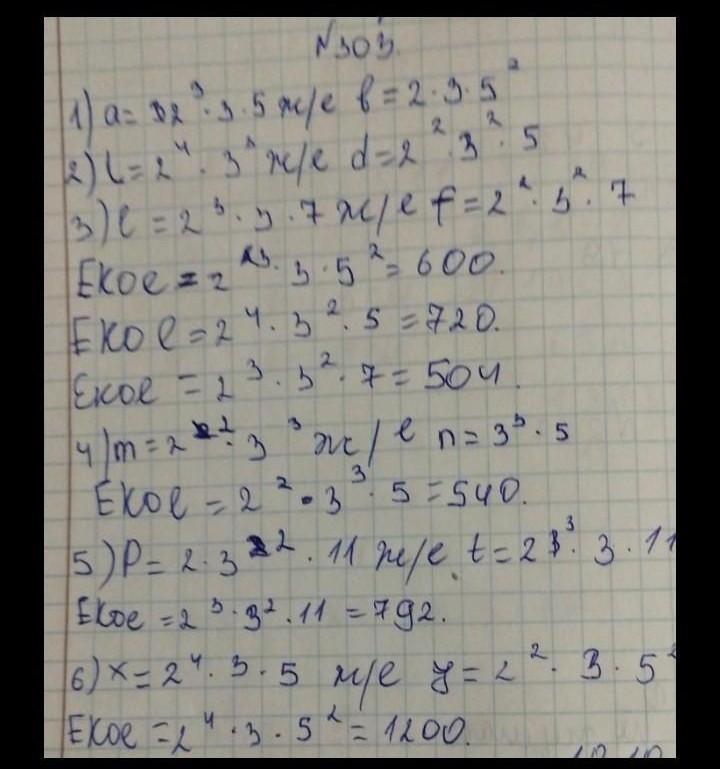 N303.
1) a = 2³ · 3 · 5 ж/е b = 2 · 3 · 5²
2) c = 2⁴ · 3² ж/е d = 2² · 3² · 5
3) e = 2³ · 3 · 7 ж/е f = 2² · 3² · 7
ЕКОЕ = 2³ · 3 · 5² = 600.
ЕКОЕ = 2⁴ · 3² · 5 = 720.
ЕКОЕ = 2³ · 3² · 7 = 504.
4) m = 2² · 3³ ж/е n = 3³ · 5
ЕКОЕ = 2² · 3³ · 5 = 540.
5) P = 2 · 3² · 11 ж/е t = 2³ · 3 · 11
ЕКОЕ = 2³ · 3² · 11 = 792.
6) x = 2⁴ · 3 · 5 ж/е y = 2² · 3 · 5²
ЕКОЕ = 2⁴ · 3 · 5² = 1200.